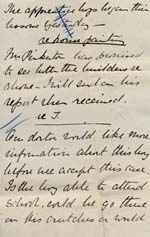 The apprentice boys began their
lessons yesterday —
re house painting
Mr Pinkerton has promised
to see both the builders
alone — I will send on his
report when received.
re T.
Our doctor would like more
information about this boy
before we accept this case.
Is the boy able to attend
school, could he go there
on his crutches or would